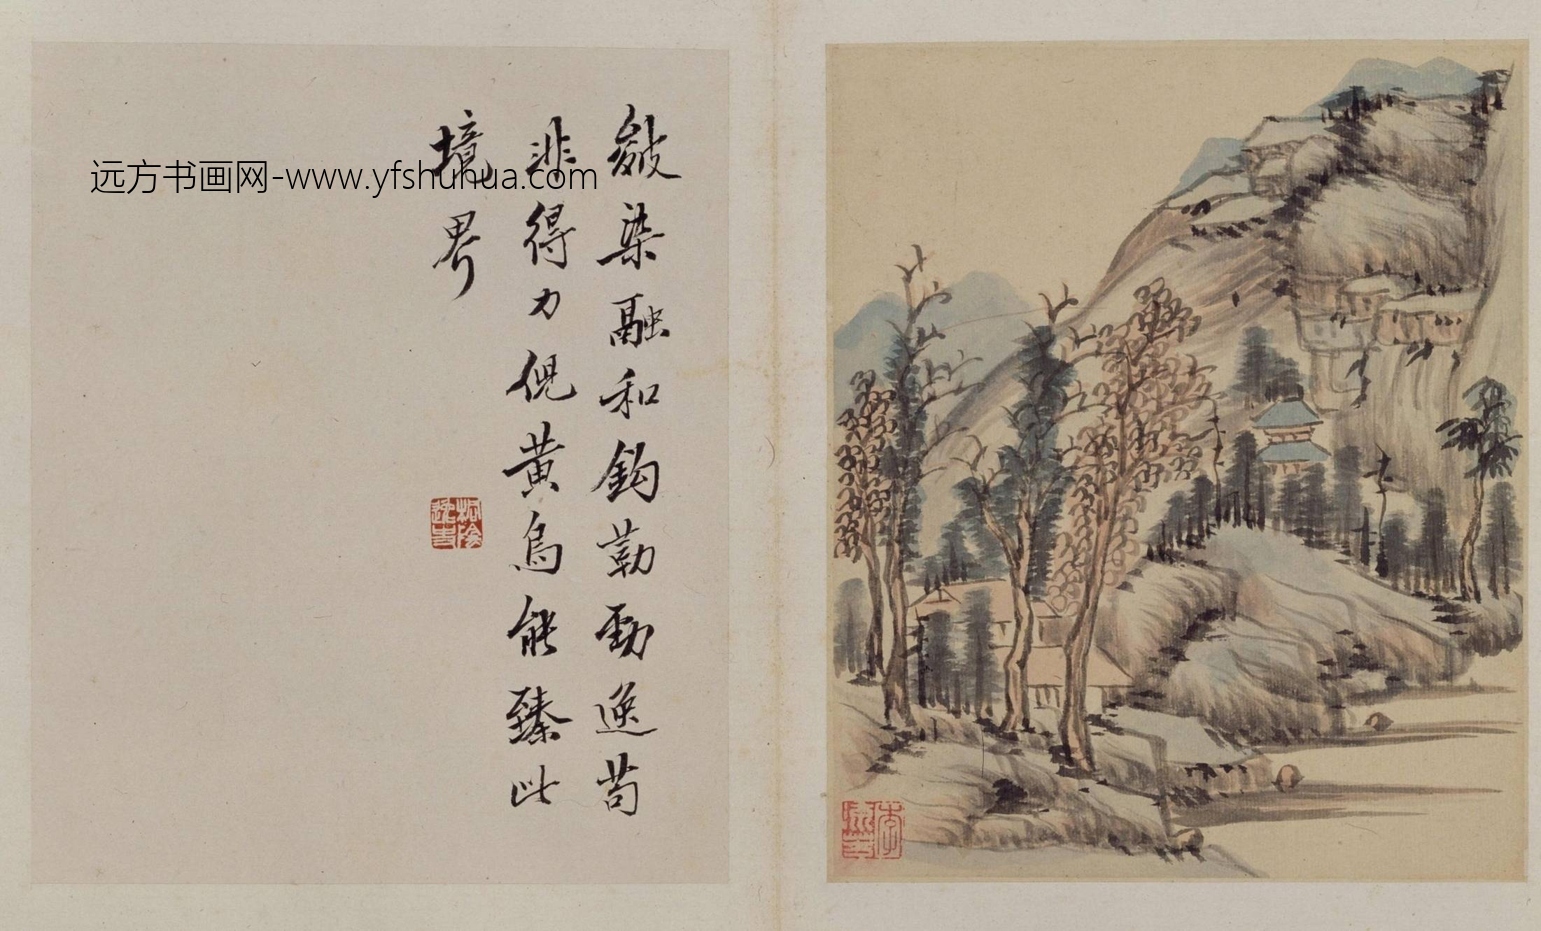 皴染融和鈎勒勁逸苟
非得力倪黄烏能臻此
境界
远方书画网-www.yfshuhua.com